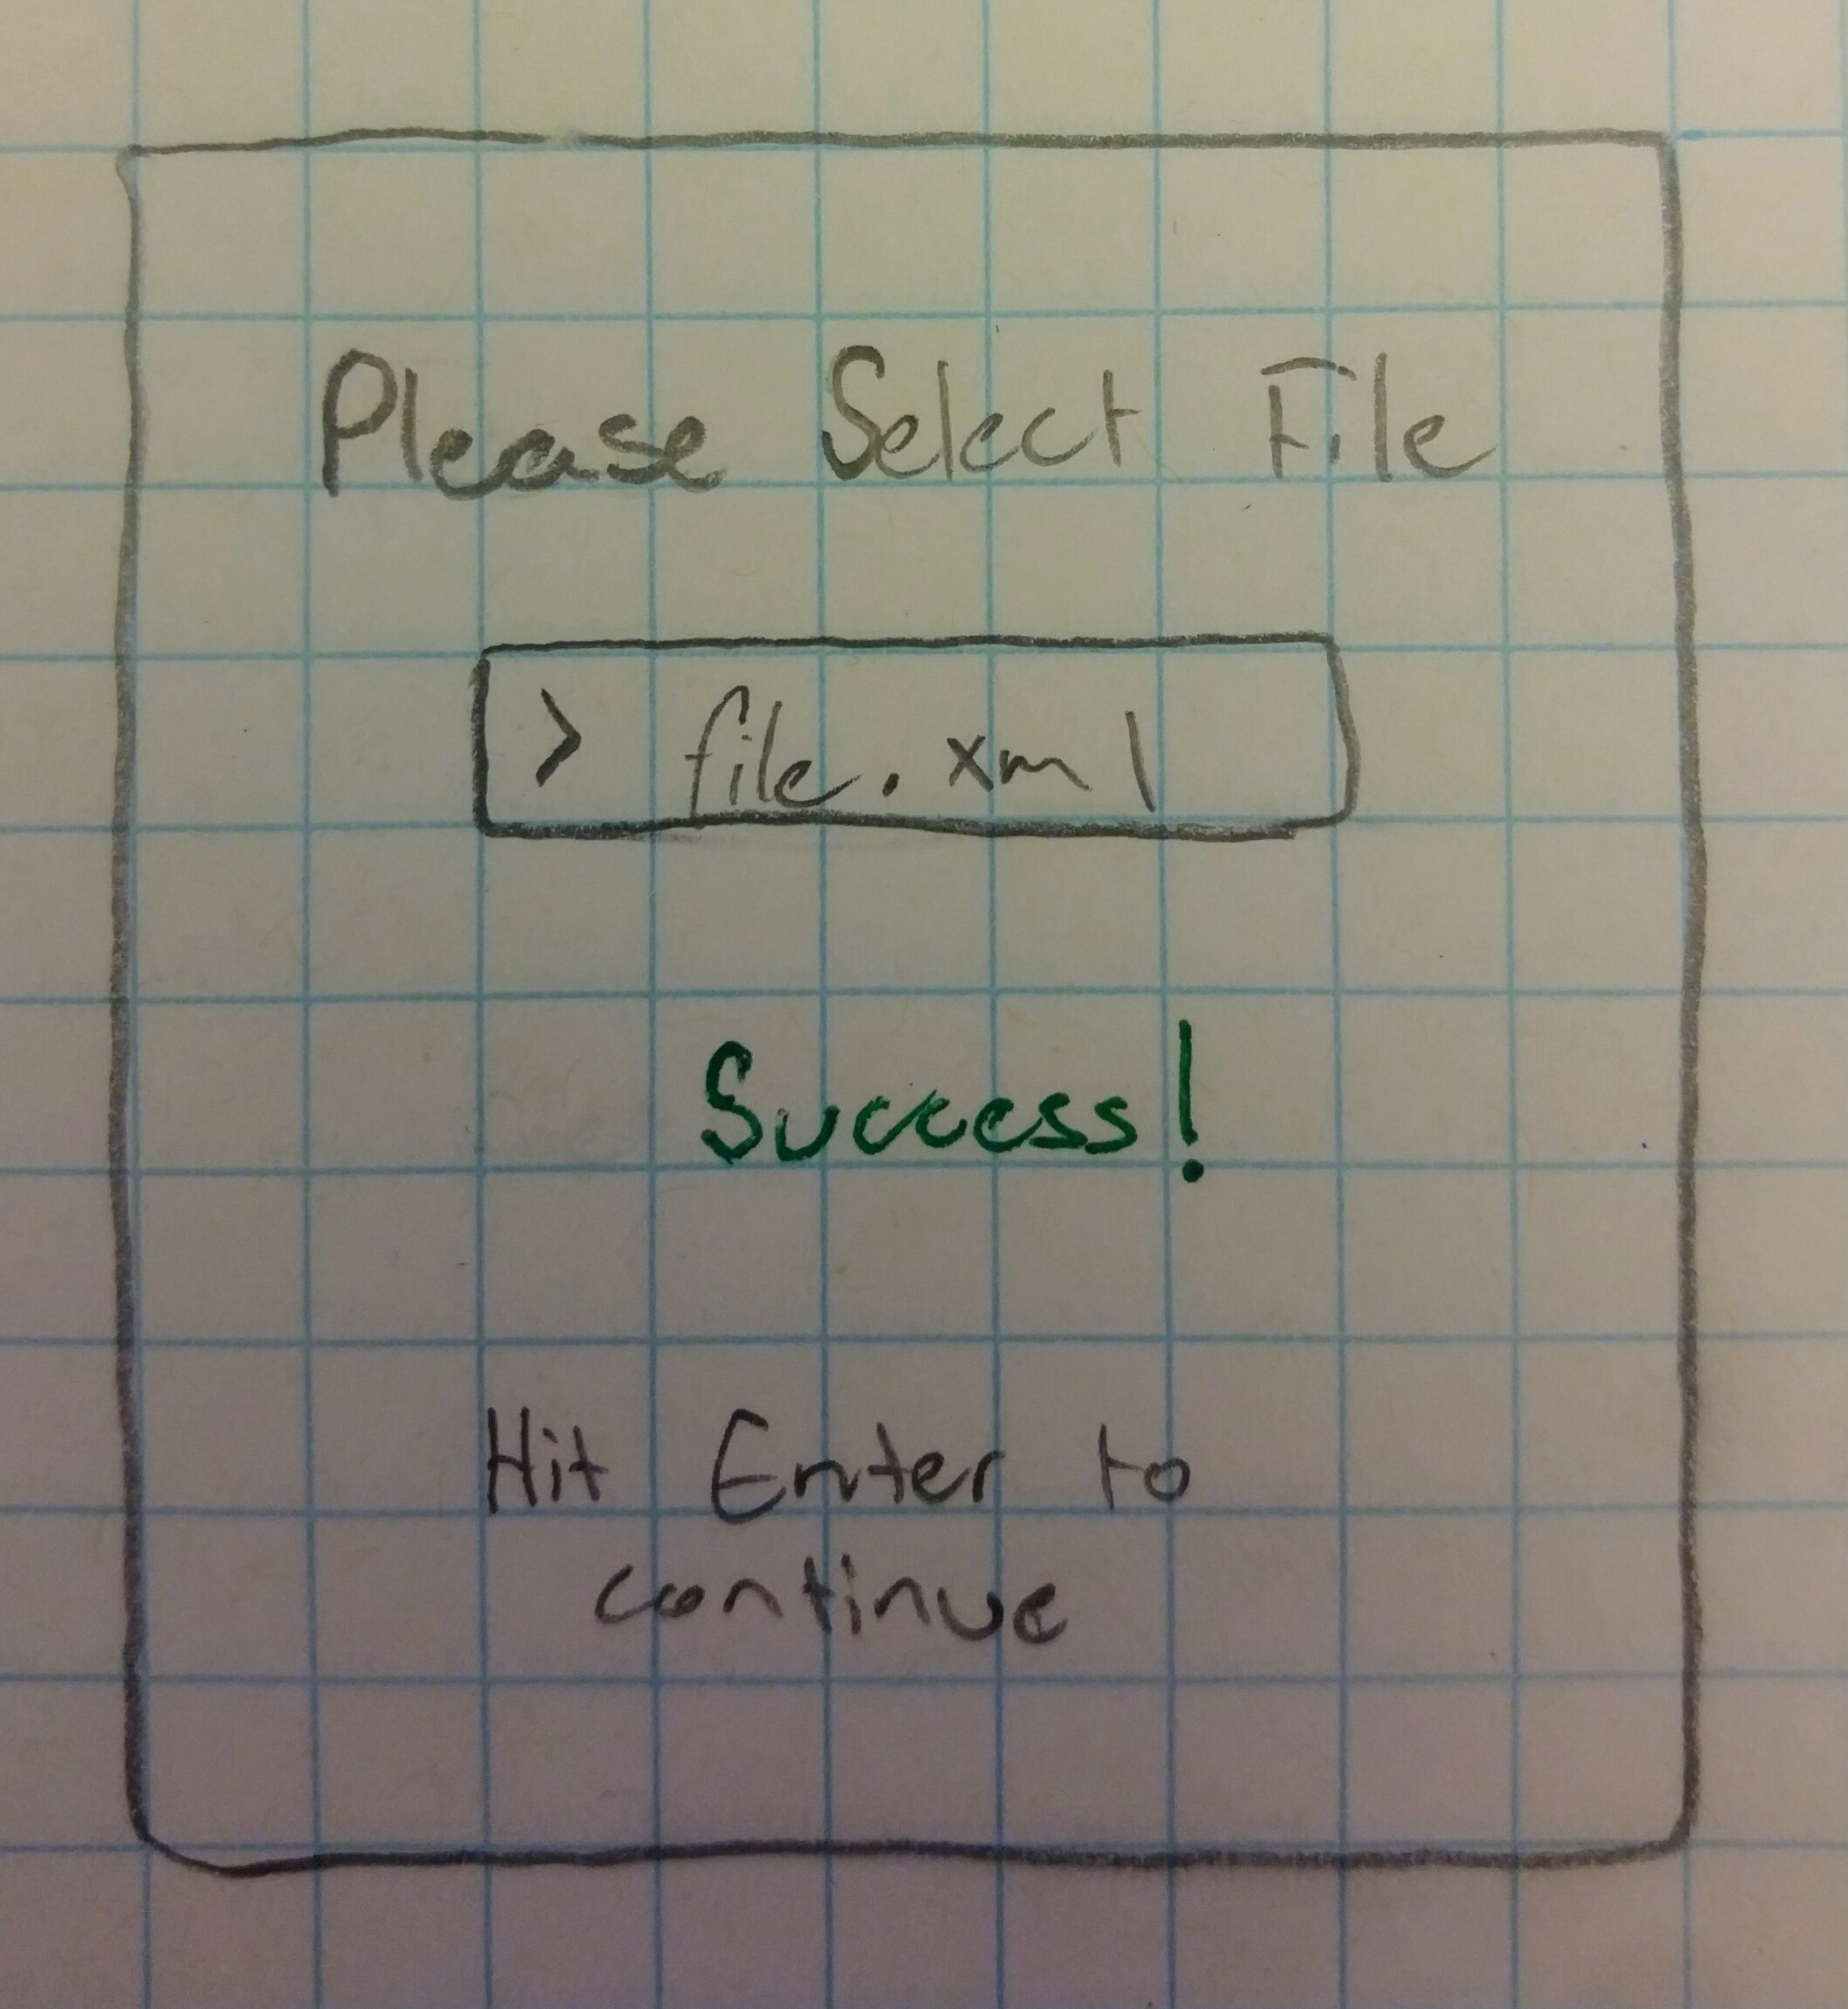 Please Select File
> file.xml
Success!
Hit Enter to
continue